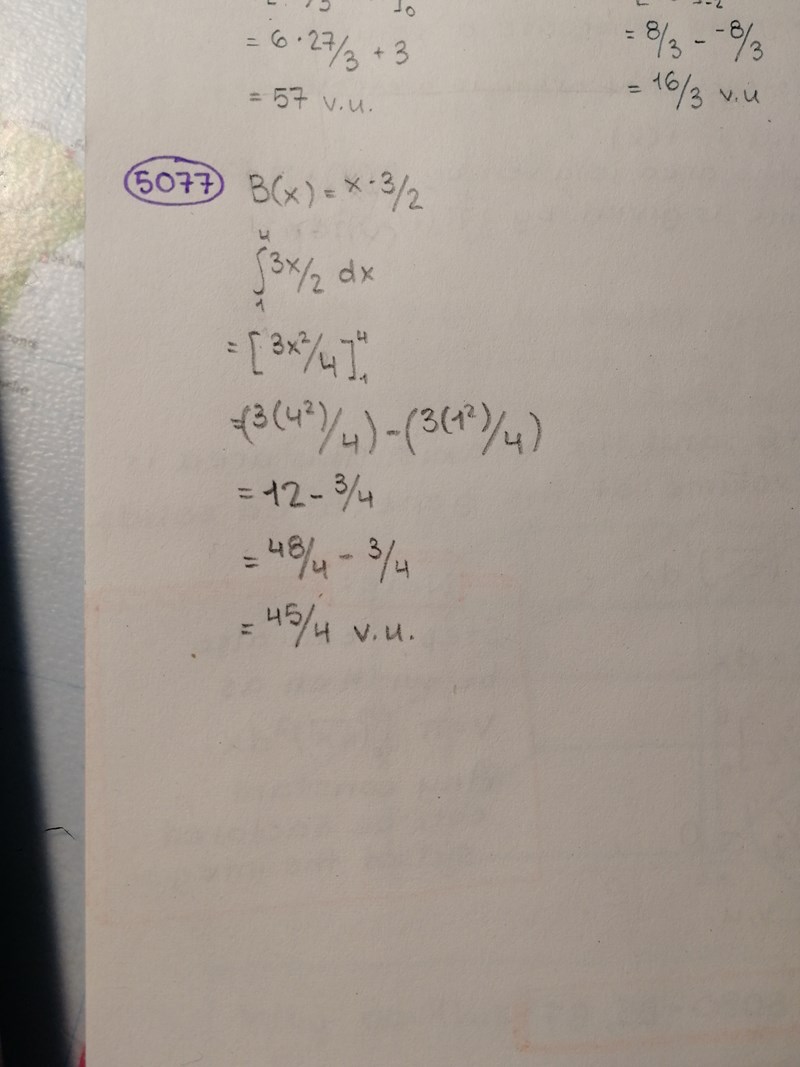 = 6 · 27/3 + 3
= 57 v.u.
= 8/3 - -8/3
= 16/3 v.u
5077 B(x) = x · 3/2
∫₁⁴ 3x/2 dx
= [3x²/4]₁⁴
= (3(4²)/4) - (3(1²)/4)
= 12 - 3/4
= 48/4 - 3/4
= 45/4 v.u.